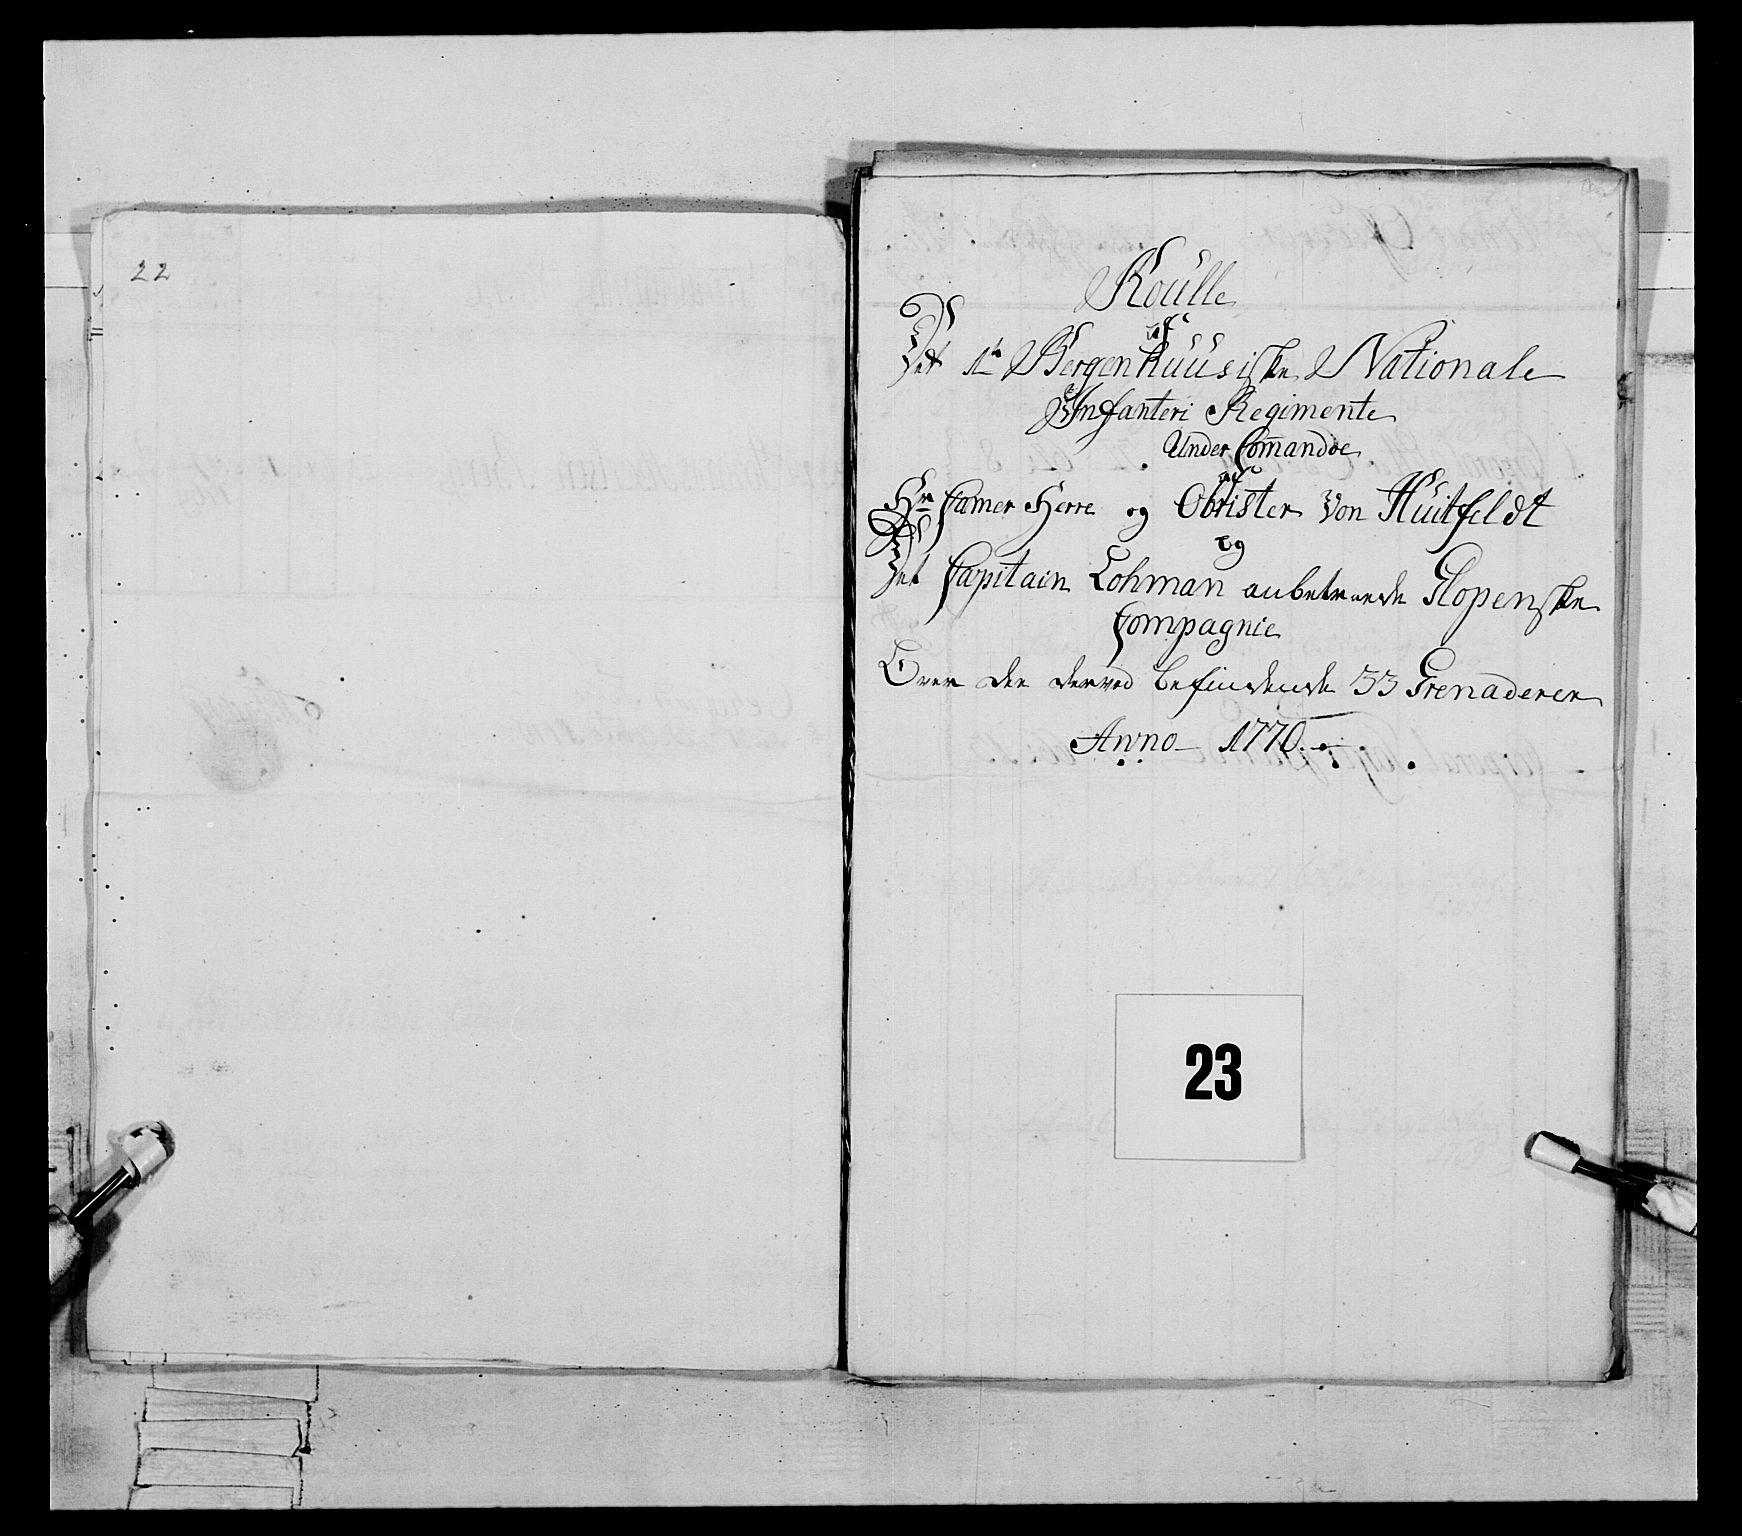 22
Roulle
af
Det 1te Bergenhuusiske Nationale
Infanteri Regimente
Under Comandoe
af
Hr Camer Herre og Obrister von Huitfeldt
og
Det Capitain Lohman anbetroede Glopenske
Compagnie
Over de derved befindende 33 Grenaderer
Anno 1770.
23